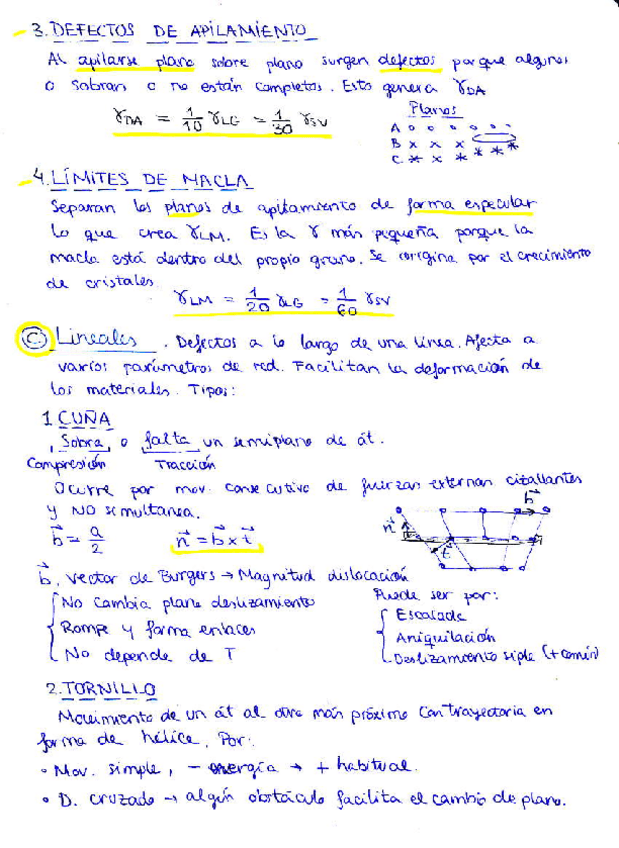 3. DEFECTOS DE APILAMIENTO
Al apilarse plano sobre plano surgen defectos porque algunos
o sobran o no están completos. Esto genera γDA
γDA = 1/10 γLG = 1/30 γSV
Planos
A o o o o o o
B x x x
C * x x * * * *
4. LÍMITES DE MACLA
Separan los planos de apilamiento de forma especular
lo que crea γLM. Es la γ más pequeña porque la
macla está dentro del propio grano. Se origina por el crecimiento
de cristales.
γLM = 1/20 γLG = 1/60 γSV
C) Lineales. Defectos a lo largo de una línea. Afecta a
varios parámetros de red. Facilitan la deformación de
los materiales. Tipos:
1 CUÑA
Sobra o falta un semiplano de át.
Compresión Tracción
Ocurre por mov. consecutivo de fuerzas externas citallantes
y NO simultanea.
b
n
t
b = a/2 n = b x t
b, vector de Burgers → Magnitud dislocación
No cambia plano deslizamiento
Rompe y forma enlaces
No depende de T
Puede ser por:
Escalada
Aniquilación
Deslizamiento siple (+ común)
2. TORNILLO
Movimiento de un át al otro más próximo con trayectoria en
forma de hélice. Por:
• Mov. simple, - energía → + habitual.
• D. cruzado → algún obstáculo facilita el cambio de plano.